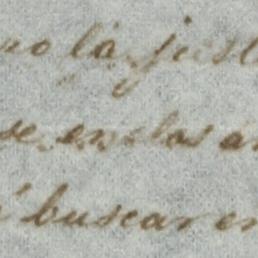 no la just
se en los an
á buscar en